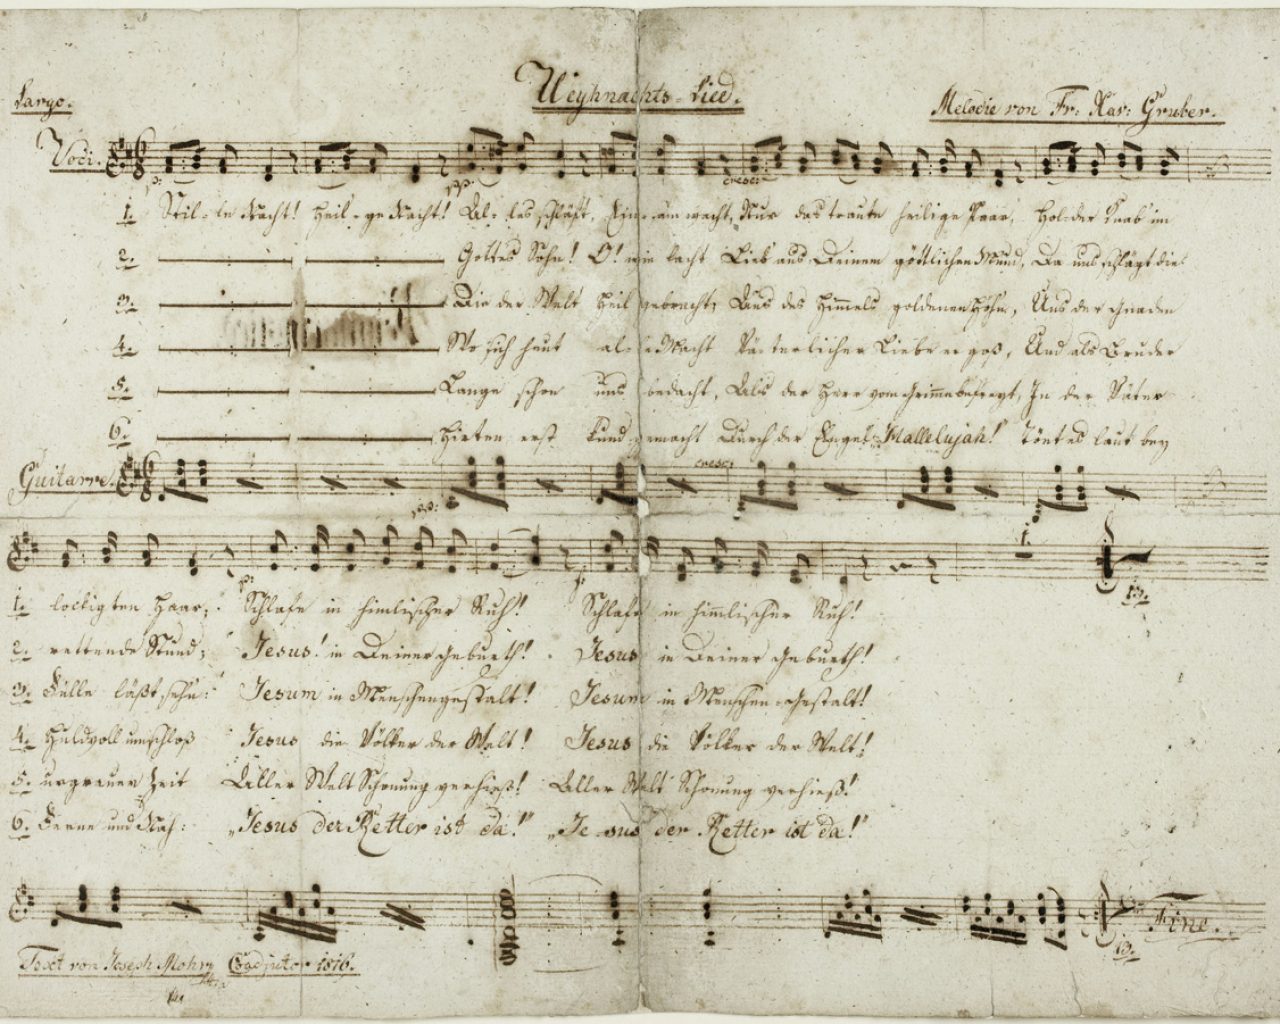 Weyhnachts-Lied.
Largo.
Melodie von Fr: Xav: Gruber.
Voci.
p: pp: cresc:
1. Stil-le Nacht! Heil-ge Nacht! Al-les schläft, Ein-sam wacht, Nur das traute heilige Paar, Holder Knab im
2. Gottes Sohn! O! wie lacht Lieb aus Deinem göttlichen Mund, Da uns schlägt die
3. Die der Welt Heil gebracht, Aus des Himmels goldenen Höhn, Uns der Gnaden
4. Wo sich heut al-le Macht Väterlicher Liebe ergoß, Und als Bruder
5. Lange schon uns bedacht, Als der Herr vom Grimme befreyt, In der Väter
6. Hirten erst kund gemacht Durch der Engel „Hallelujah!" Tönt es laut bey
Guitarre.
cresc:
pp:
p: f:
1.
13.
1. lockigten Haar; Schlafe in himlischer Ruh! Schlafe in himlischer Ruh!
2. rettende Stund; Jesus! in Deiner Geburth! Jesus in Deiner Geburth!
3. Fülle läßt sehn: Jesum in Menschengestalt! Jesum in Menschen-Gestalt!
4. Huldvoll umschloß Jesus die Völker der Welt! Jesus die Völker der Welt!
5. urgrauer Zeit Aller Welt Schonung verhieß! Aller Welt Schonung verhieß!
6. Ferne und Nah: „Jesus der Retter ist da!" „Jesus der Retter ist da!"
Fine.
13.
Text von Joseph Mohr Coadjutor 1816.